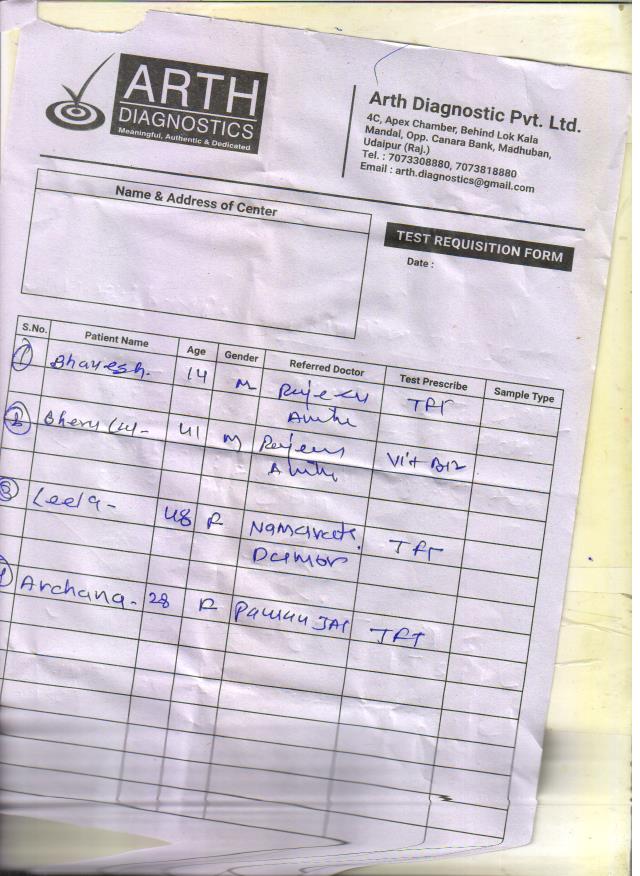 ARTH
DIAGNOSTICS
Meaningful, Authentic & Dedicated
Arth Diagnostic Pvt. Ltd.
4C, Apex Chamber, Behind Lok Kala
Mandal, Opp. Canara Bank, Madhuban,
Udaipur (Raj.)
Tel. : 7073308880, 7073818880
Email : arth.diagnostics@gmail.com
Name & Address of Center
TEST REQUISITION FORM
Date :
S.No. Patient Name Age Gender Referred Doctor Test Prescribe Sample Type
1 Bhavesh. 14 M TFT
2 41 M Vit B12
3 Leela - 48 F TFT
Damor
4 Archana - 28 F TFT